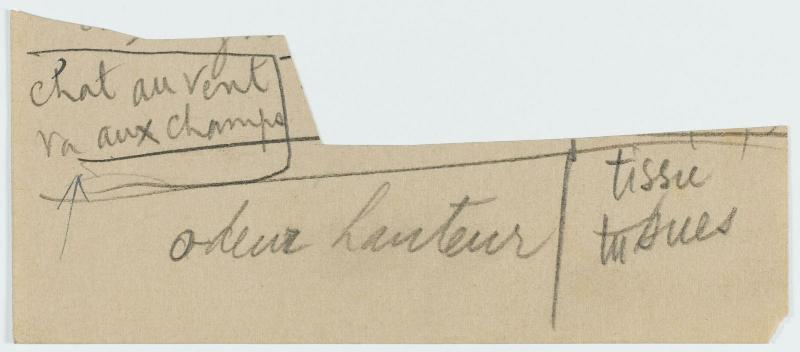 chat au vent
va aux champs
odeur hauteur
tissu